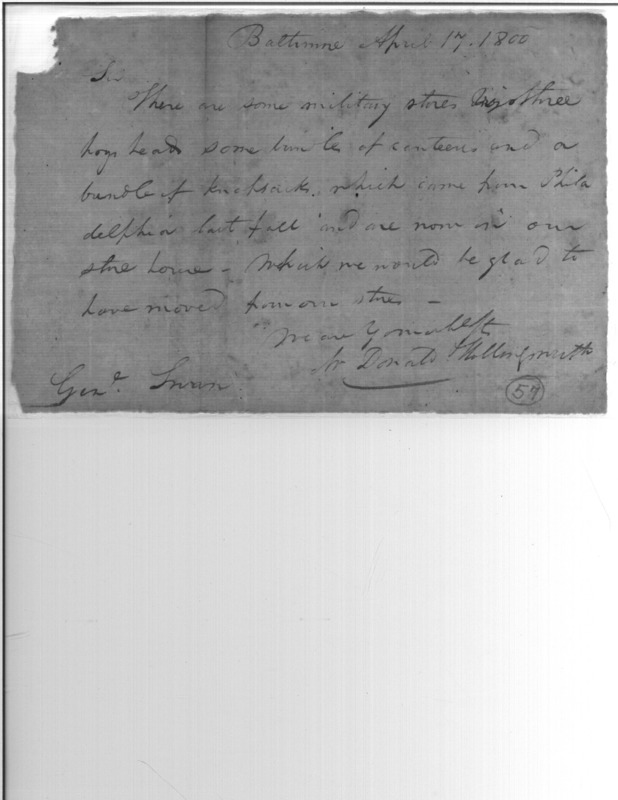 Baltimore April 17. 1800
Sir
There are some military stores three
hogsheads some bundles of canteens and a
bundle of knapsacks, which came from Phila
delphia last fall and are now in our
store house - Which we would be glad to
have moved from our stores -
We are
Donald Hollingsworth
Genl. Swan
57